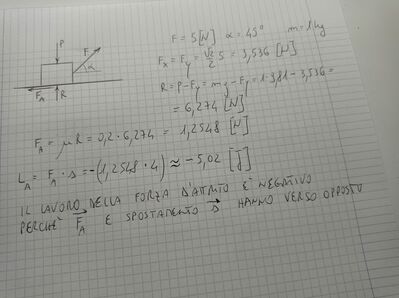 P
F
α
F_A
R
F = 5 [N] α = 45° m = 1 kg
F_x = F_y = √2/2 5 = 3,536 [N]
R = P - F_y = mg - F_y = 1·9,81 - 3,536 =
= 6,274 [N]
F_A = μR = 0,2 · 6,274 = 1,2548 [N]
L_A = F_A · s = -(1,2548 · 4) ≈ -5,02 [J]
IL LAVORO DELLA FORZA D'ATTRITO E' NEGATIVO
PERCHE' F_A E SPOSTAMENTO s HANNO VERSO OPPOSTO